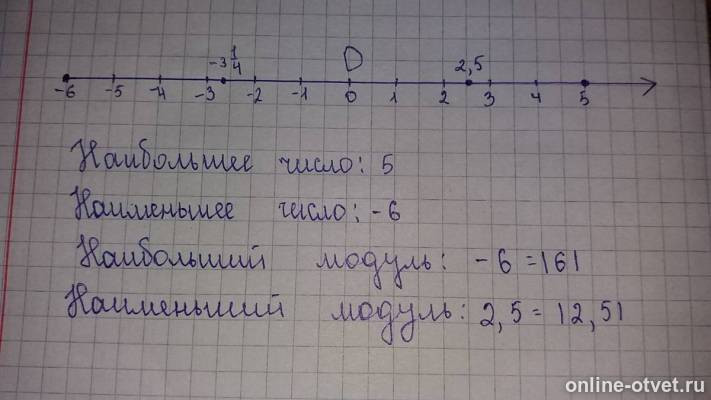 -3 1/4 D 2,5
-6 -5 -4 -3 -2 -1 0 1 2 3 4 5
Наибольшее число: 5
Наименьшее число: -6
Наибольший модуль: -6 = |6|
Наименьший модуль: 2,5 = |2,5|
online-otvet.ru